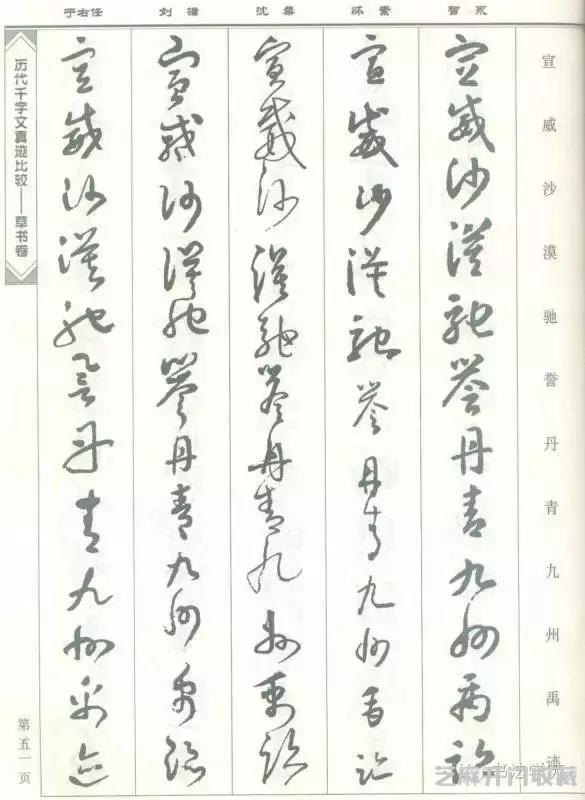 宣威沙漠驰誉丹青九州禹迹
智永
宣威沙漠馳譽丹青九州禹跡
怀素
宣威沙漠馳譽丹青九州禹跡
沈粲
宣威沙漠馳譽丹青九州禹跡
宣威沙漠馳譽丹青九州禹跡
于右任
宣威沙漠馳譽丹青九州禹迹
历代千字文真迹比较——草书卷
第五一页
芝麻开门收藏